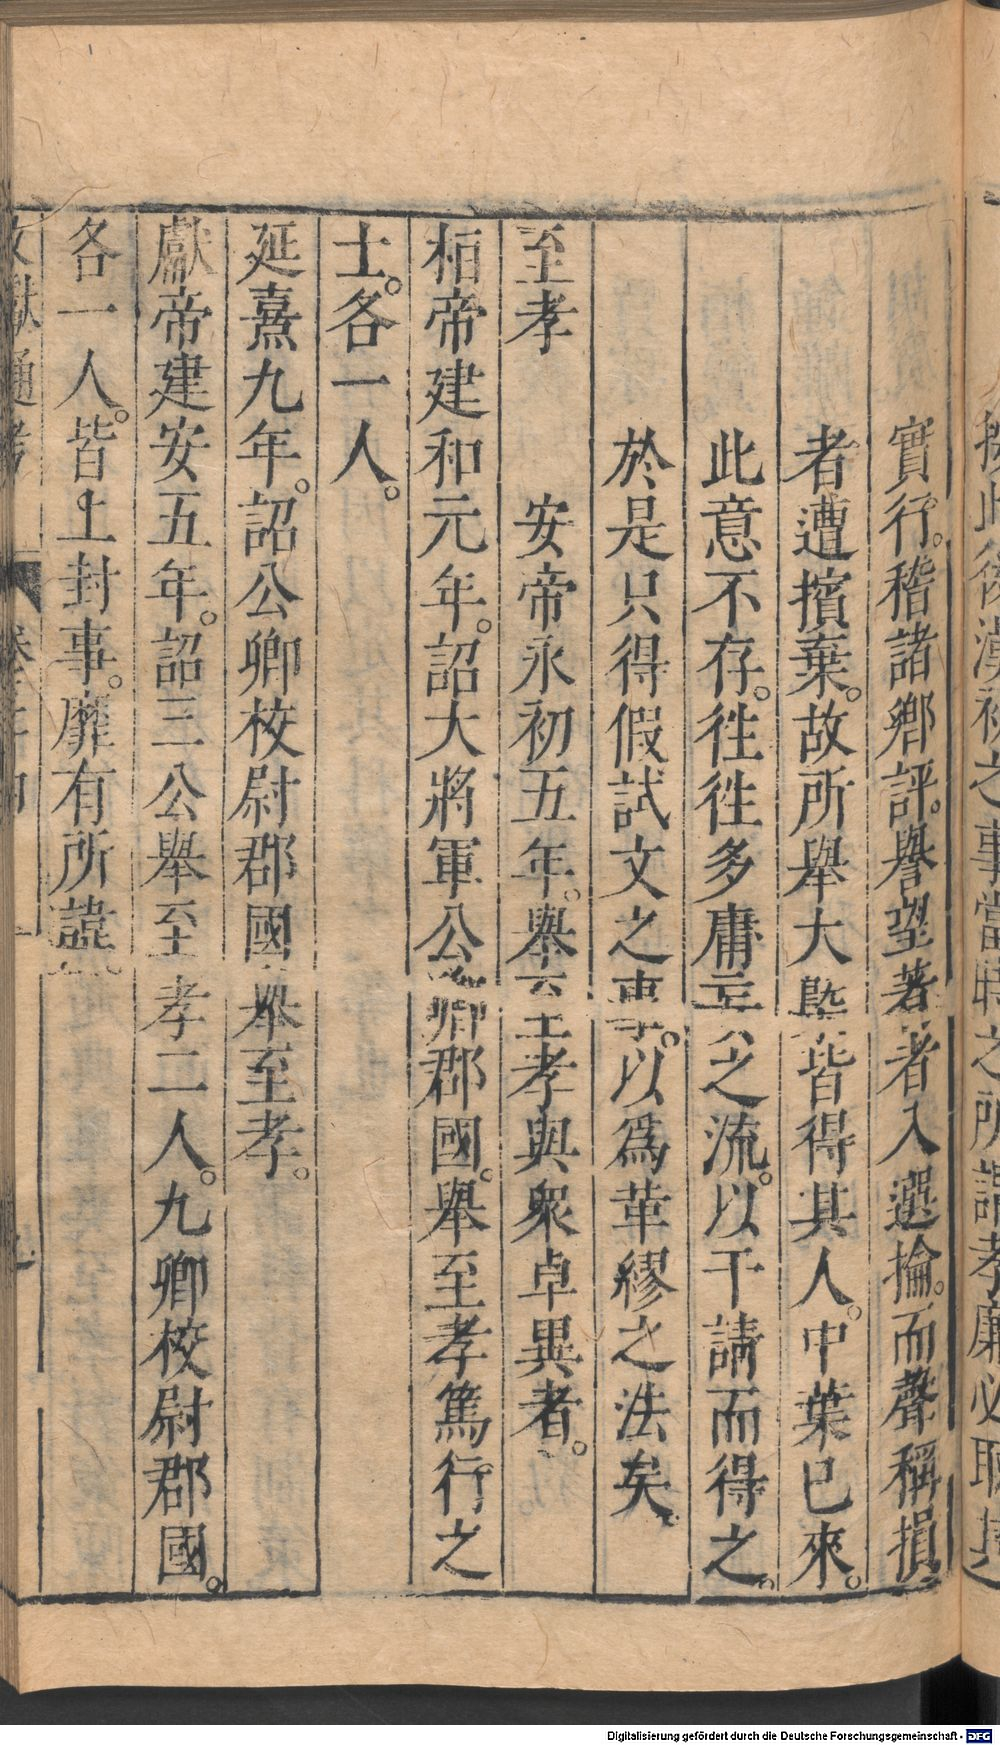 實行。稽諸鄉評。譽望著者入選掄。而聲稱損
者遭擯棄。故所舉大槩皆得其人。中葉已來。
此意不存。徃徃多庸之流。以干請而得之。
於是只得假試文之事。以爲革繆之法矣。
至孝 安帝永初五年。舉至孝與衆卓異者。
桓帝建和元年。詔大將軍公卿郡國。舉至孝篤行之
士。各一人。
延熹九年。詔公卿校尉郡國舉至孝。
獻帝建安五年。詔三公舉至孝二人。九卿校尉郡國。
各一人。皆上封事。靡有所諱。
文獻通考
Digitalisierung gefördert durch die Deutsche Forschungsgemeinschaft - DFG